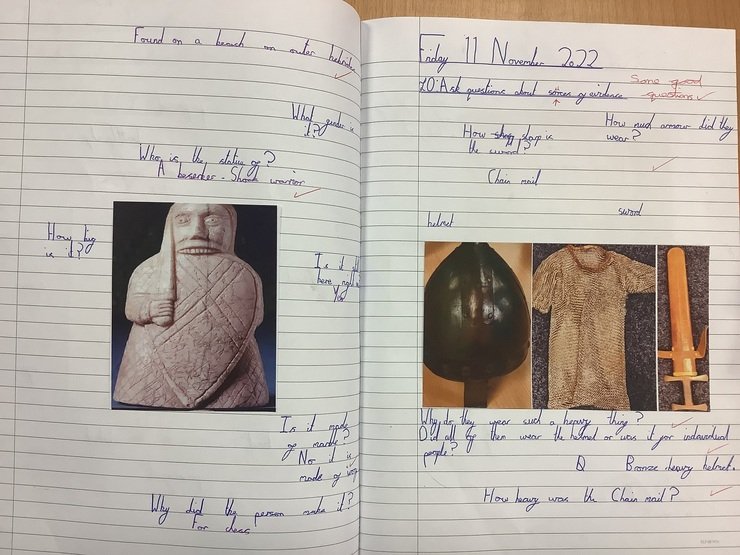 Found on a beach on outer hebrides
What gender is
it?
Who is the statue of?
A beserker - Shock warrior
How big
is it?
Is it still
here right
You
Is it made
of marble?
No it is
made of
Why did the person make it?
for chess
Friday 11 November 2022
LO: Ask questions about sorces of evidence
Some good
questions
How mud armour did they
wear?
How sharp is
the sword?
Chain mail
sword
helmet
Why do they wear such a heavy thing?
Did all of them wear the helmet or was it for indavadual
people?
Q Bronze heavy helmet.
How heavy was the Chain mail?